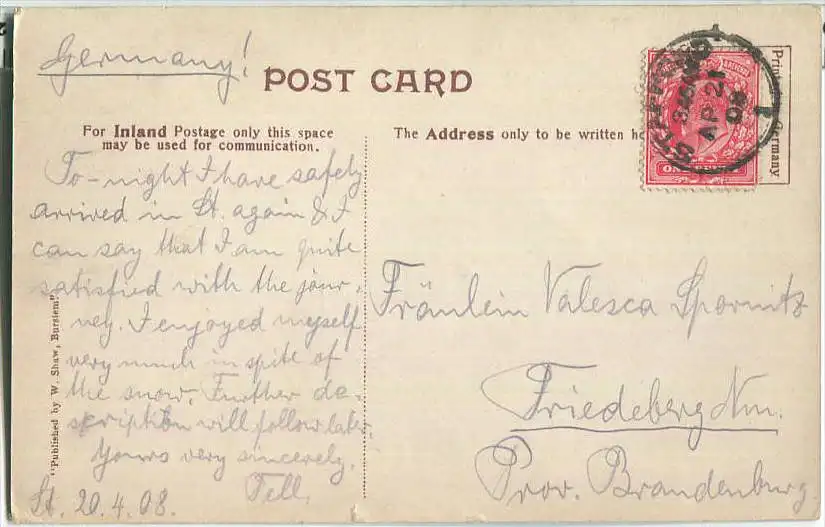 Germany!
POST CARD
For Inland Postage only this space
may be used for communication.
The Address only to be written
To-night I have safely
arrived in St. again & I
can say that I am quite
satisfied with the jour-
ney. I enjoyed myself
very much in spite of
the snow. Further de-
scription will follow later.
Yours very sincerely,
Tell.
St. 20.4.08.
"Published by W. Shaw, Burslem"
Fräulein Valesca Spornitz
Friedeberg Nm.
Prov. Brandenburg
AP 21
08
ONE
Germany.